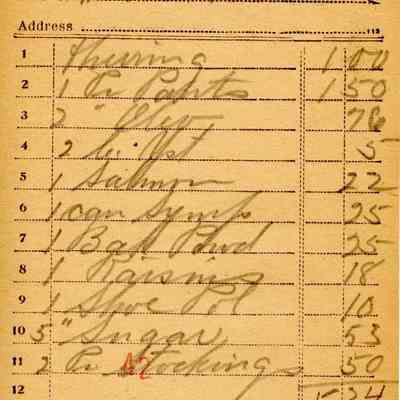 Address
1 1 00
2 1 Pr Pants 1 50
3 2 " 76
4 2 5
5 1 Salmon 22
6 1 can Syrup 25
7 1 Bak Powd 25
8 1 Raisins 18
9 1 Shoe Pol 10
10 5 " Sugar 53
11 2 Pr Stockings 50
12 5 34